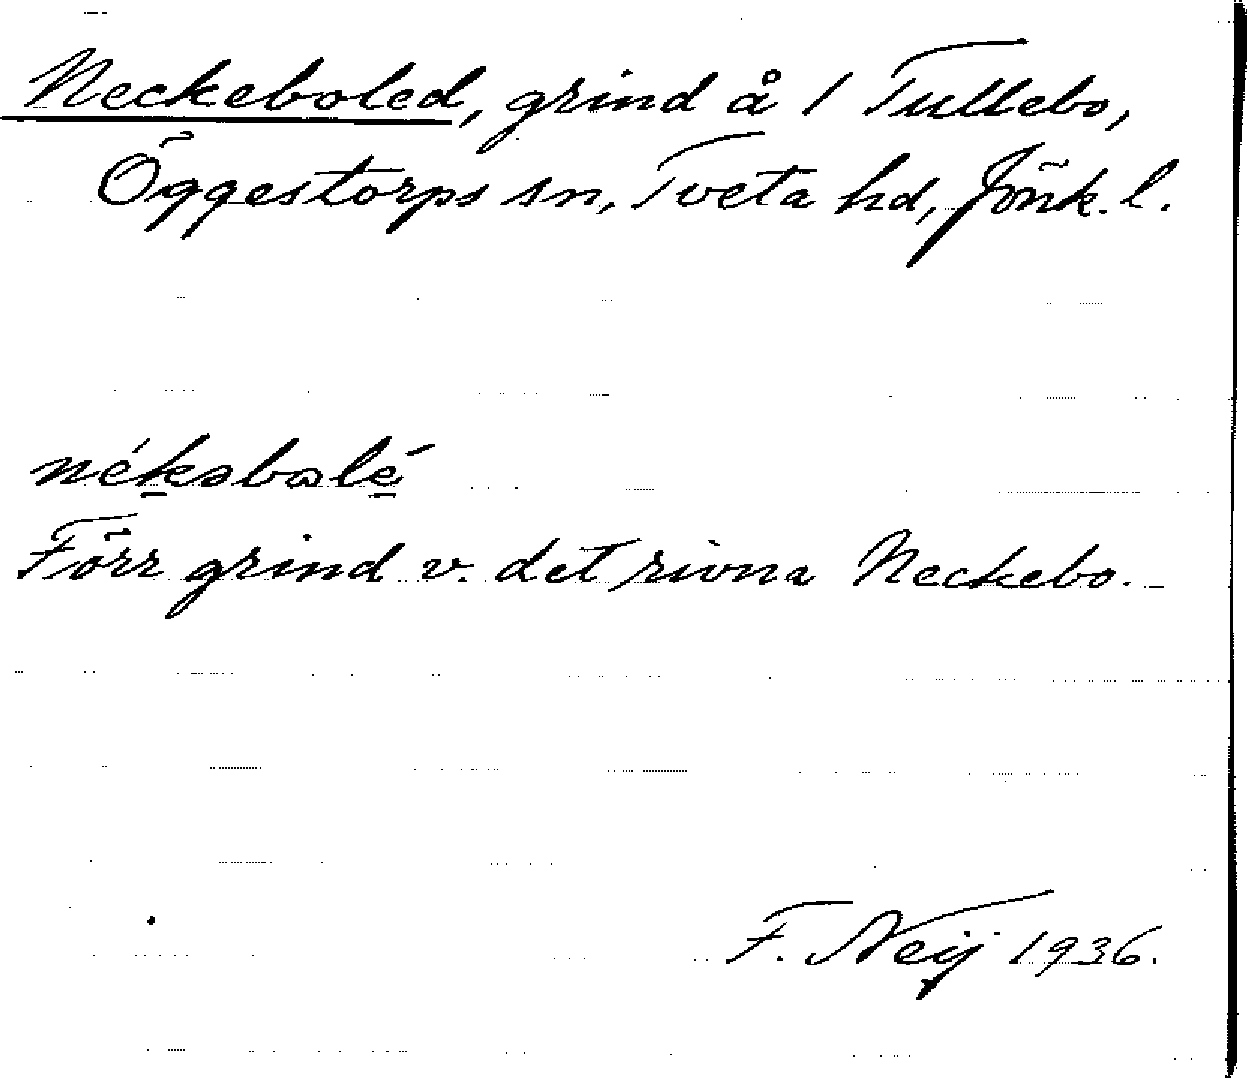 Neckeboled, grind å 1 Tullebo,
Öggestorps sn, Tveta hd, Jönk. l.
Förr grind v. det rivna Neckebo.
F. Neij 1936.